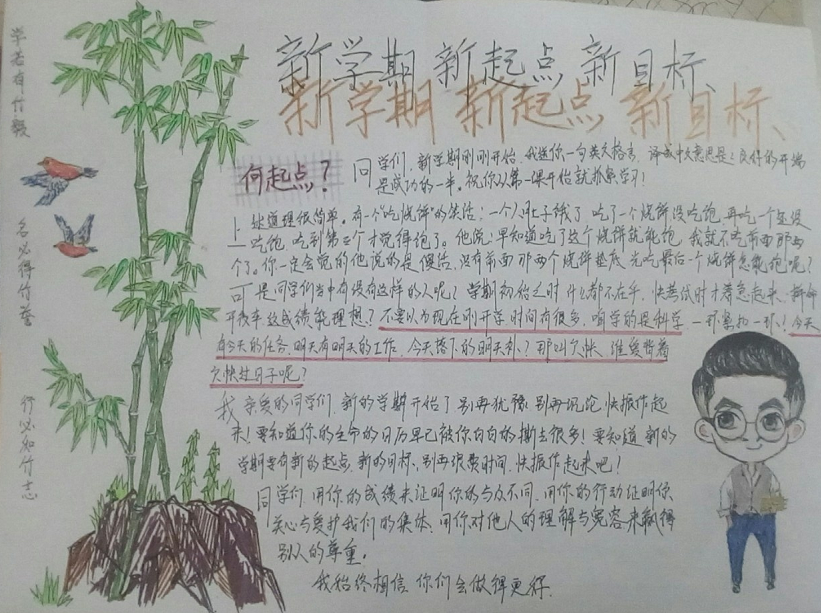 新学期 新起点 新目标、
新学期 新起点 新目标、
何起点？
同学们，新学期刚刚开始，我送你一句英文格言，译成中文意思是：良好的开端
是成功的一半。祝你从第一课开始就抓紧学习！
上述道理很简单。有一个"吃烧饼"的笑话：一个人肚子饿了，吃了一个烧饼没吃饱，再吃一个还没
吃饱，吃到第三个才觉得饱了。他说：早知道吃了这个烧饼就能饱，我就不吃前面那两
个了。你一定会觉的他说的是傻话，没有前面那两个烧饼垫底，光吃最后一个烧饼怎能饱呢？
可是同学们当中有没有这样的人呢？学期初始之时，什么都不在乎，快考试时才着急起来，拼命
开夜车，这成绩能理想？不要以为现在刚开学，时间有很多，咱学的是科学，一环紧扣一环！今天
有今天的任务，明天有明天的工作，今天落下的明天补？那叫欠帐，谁爱背着
欠帐过日子呢？
我亲爱的同学们，新的学期开始了，别再犹豫，别再沉沦，快振作起
来！要知道你的生命的日历早已被你白白的撕去很多！要知道，新的
学期要有新的起点，新的目标，别再浪费时间，快振作起来吧！
同学们，用你的成绩来证明你的与众不同，用你的行动证明你
关心与爱护我们的集体，用你对他人的理解与宽容来赢得
别人的尊重。
我始终相信，你们会做得更好。
学若有竹毅
名必得竹誉
行必和竹志